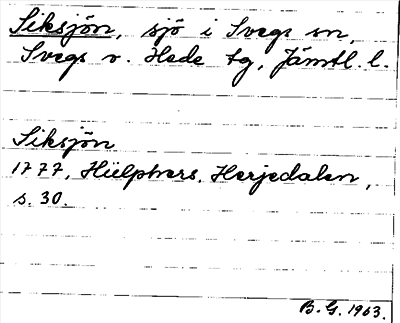 Siksjön, sjö i Svegs sn,
Svegs o. Hede tg, Jämtl. l.
Siksjön
1777, Hülphers, Herjedalen,
s. 30.
B. G. 1963.